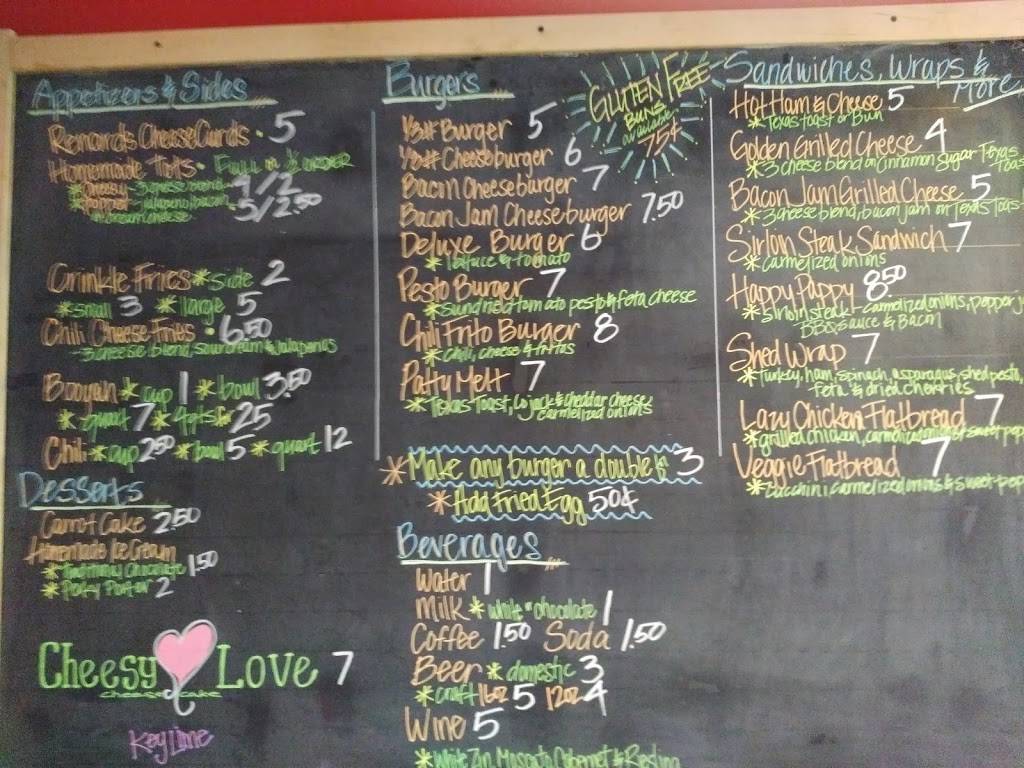 Appetizers & Sides
Renard's Cheese Curds • 5
Homemade Tots • Full or ½ order
*Cheesy - 3 cheese blend 4/2
*Popper - jalapeno, bacon,
cream cheese 5/2.50
Crinkle Fries *side 2
*small 3 *large 5
Chili Cheese Fries • 6.50
- 3 cheese blend, sour cream & jalapenos
Booyah *cup 1 *bowl 3.50
*quart 7 *4 qts for 25
Chili *cup 2.50 *bowl 5 *quart 12
Desserts
Carrot Cake 2.50
Homemade Ice Cream
Chocolate 1.50
2
Cheesy Love 7
cheesecake
Key Lime
Burgers
⅓# Burger 5
⅓# Cheeseburger 6
Bacon Cheeseburger 7
Bacon Jam Cheeseburger 7.50
Deluxe Burger 6
*lettuce & tomato
Pesto Burger 7
*sundried tomato pesto & feta cheese
Chili Frito Burger 8
*chili, cheese & fritos
Patty Melt 7
*Texas Toast, Cojack & cheddar cheese
carmelized onions
*Make any burger a double for 3
*Add Fried Egg 50¢
Gluten Free
Buns
available
75¢
Beverages
Water 1
Milk *white or chocolate 1
Coffee 1.50 Soda 1.50
Beer *domestic 3
*craft 16oz 5 12oz 4
Wine 5
*White Zin, Moscato, Cabernet & Riesling
Sandwiches, Wraps &
More
Hot Ham & Cheese 5
*Texas toast or Bun
Golden Grilled Cheese 4
*3 cheese blend on cinnamon sugar Texas
Toast
Bacon Jam Grilled Cheese 5
*3 cheese blend, bacon jam on Texas Toast
Sirloin Steak Sandwich 7
*carmelized onions
Happy Pappy 8.50
*sirloin steak - carmelized onions, pepper j
BBQ sauce & Bacon
Shed Wrap 7
*turkey, ham, spinach, asparagus, shed pesto,
feta & dried cherries
Lazy Chicken Flatbread 7
*grilled chicken, carmelized onions & sweet pep
Veggie Flatbread 7
*zucchini, carmelized onions & sweet pep